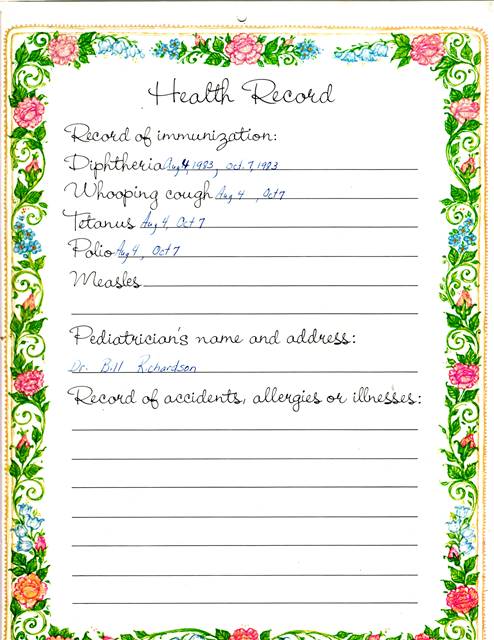 Health Record
Record of immunization:
Diphtheria Aug 4, 1983, Oct. 7, 1983
Whooping cough Aug 4, Oct 7
Tetanus Aug 4, Oct 7
Polio Aug 4, Oct 7
Measles
Pediatrician's name and address:
Dr. Bill Richardson
Record of accidents, allergies or illnesses: